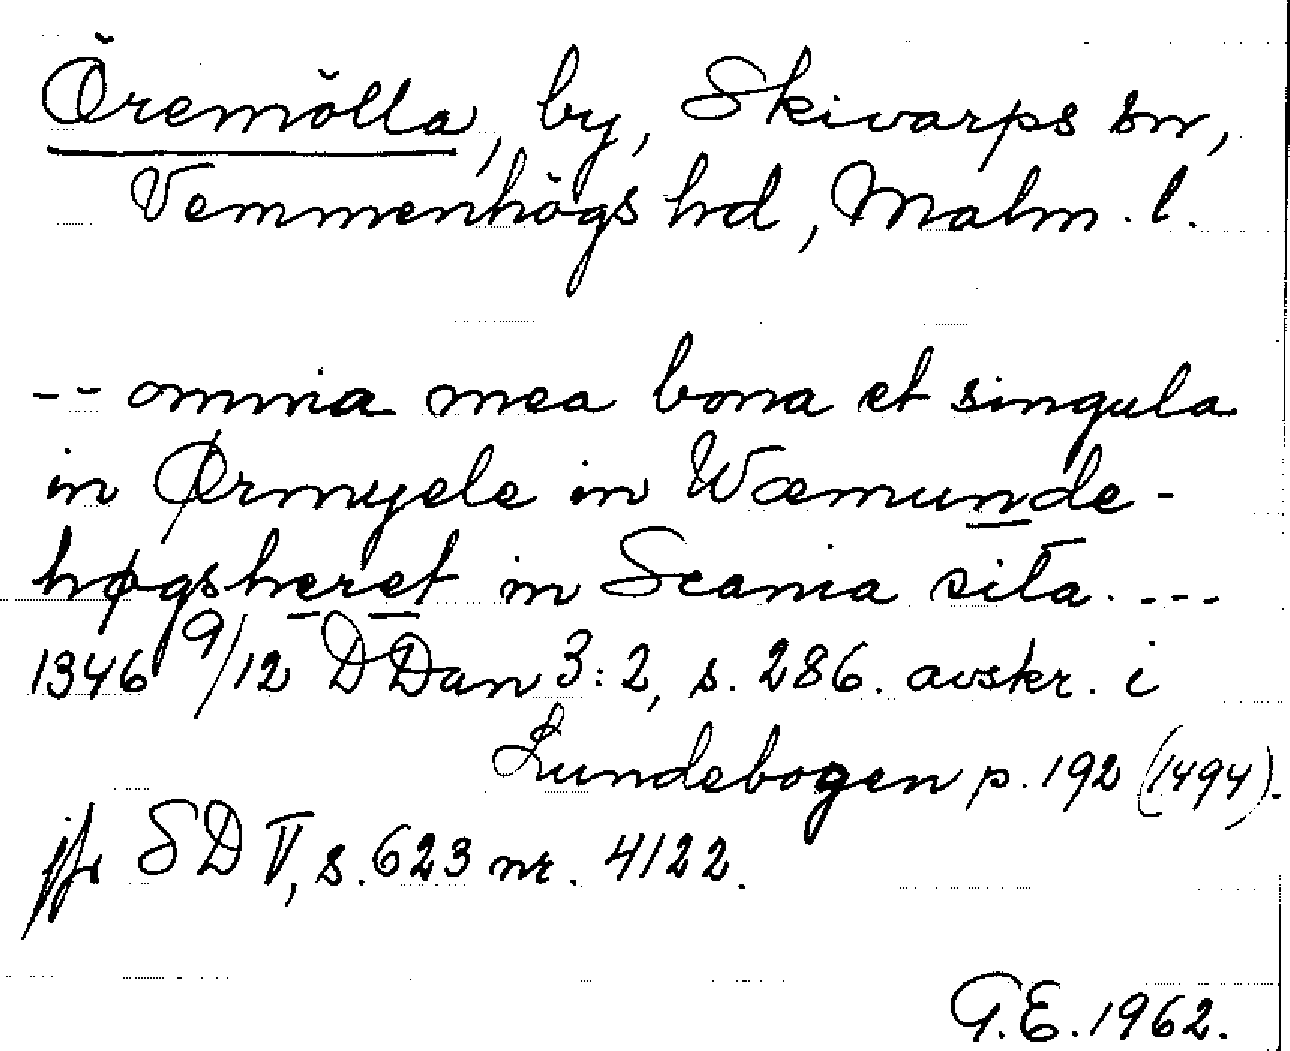 Öremölla, by, Skivarps sn,
Vemmenhögs hd, Malm. l.
-- omnia mea bona et singula
in Ørmyele in Wæmunde-
høgsheret in Scania sita. ---
1346 9/12 DDan 3:2, s. 286. avskr. i
Lundebogen p. 192 (1494).
jfr SD V, s. 623 nr. 4122.
G.E. 1962.